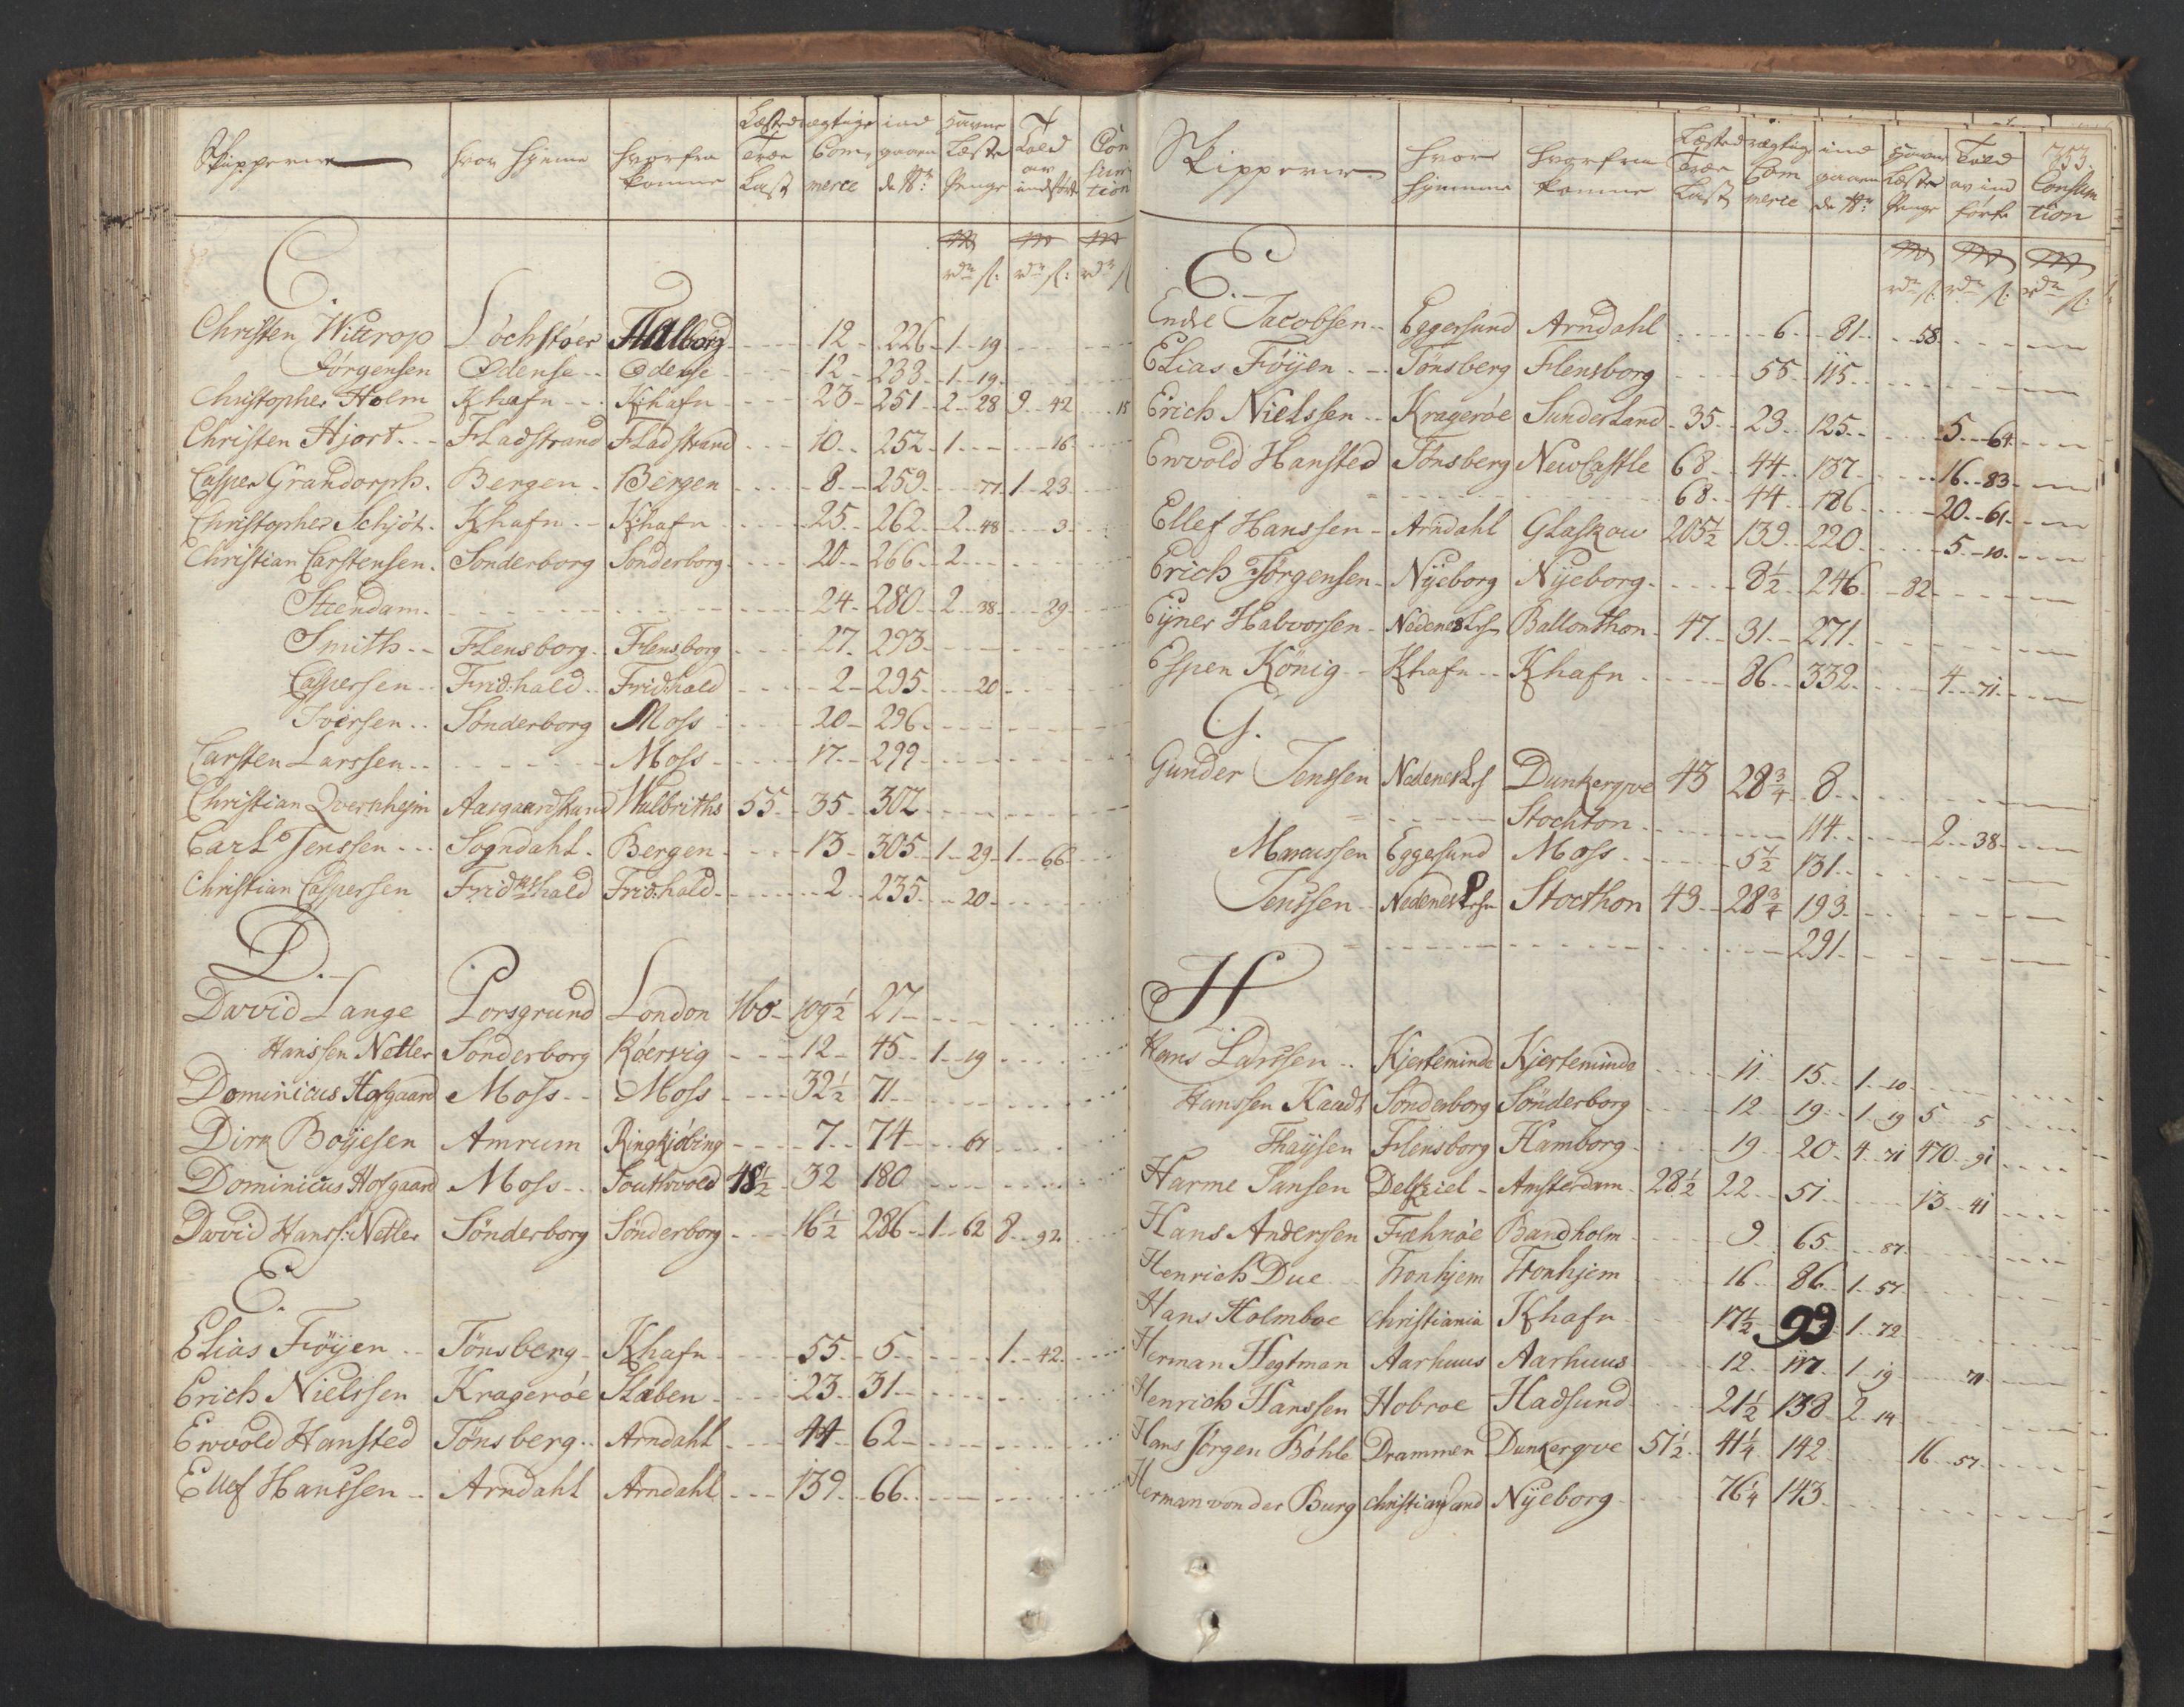 Skipperne hvor hjeme hvorfra komne Læstedrægtige Træe Last Commerce indgaaende No: Havne Læste Penge Told av indført Consumtion
rdr ſl: rdr ſl: rdr ſl
C.
Christen Wittrop Löchstöer Aalborg 12 226 1 19
Jörgensen Odense Odense 12 233 1 19
Christopher Holm Khafn Khafn 23 251 2 28 9 42 15
Christen Hjort Fladstrand Fladstrand 10 252 1 16
Casper Grandorph Bergen Bergen 8 259 77 1 23
Christopher Schjöt Khafn Khafn 25 262 2 48 3
Christian Carstensen Sönderborg Sönderborg 20 266 2
Steendam 24 280 2 38 29
Smith Flensborg Flensborg 27 293
Caspersen Frid:hald Frid:hald 2 295 20
Iversen Sönderborg Moss 20 296
Carsten Larssen Moss 17 299
Christian Qvernhejm Aasgaardstrand Walbriths 55 35 302
Carl Jenssen Sogndahl Bergen 13 305 1 29 1 66
Christian Caspersen Fridrshald Frid:hald 2 235 20
D.
David Lange Porsgrund London 160 109½ 27
Hanssen Netler Sönderborg Röervig 12 45 1 19
Dominicus Hofgaard Moss Moss 32½ 71
Dirk Boÿesen Amrum Ringkjöbing 7 74 67
Dominicus Hofgaard Moss Southwold 48½ 32 180
David Hanss: Netler Sönderborg Sönderborg 16½ 286 1 62 8 92
E.
Elias Föÿen Tönsberg Khafn 55 5 1 42
Erich Nielssen Kragerøe Staben 23 31
Ewold Hansted Tönsberg Arndahl 44 62
Ellef Hanssen Arndahl Arndahl 139 66
353.
Skipperne hvor hjemme hvorfra komne Læstedrægtige Træe Last Commerce indgaaende No: Havne Læste Penge Told av indførte Consumtion
rdr ſl: rdr ſl: rdr ſl:
E.
Endre Jacobsen Eggersund Arndahl 6 81 58
Elias Föÿen Tönsberg Flensborg 55 115
Erich Nielssen Kragerøe Sunderland 35 23 125 5 64
Ewold Hansted Tönsberg NewCastle 68 44 137 16 83
68 44 186 20 61
Ellef Hanssen Arndahl Glaskow 205½ 139 220 5 10
Erich Jörgensen Nÿeborg Nÿeborg 8½ 246 82
Eÿner Halvorsen Nedenes Ballonthon 47 31 271
Espen König Khafn Khafn 86 332 4 71
G.
Gunder Jenssen Nedenes Dunkerqve 43 28¾ 8
Stockton 114 2 38
Marcussen Eggersund Moss 5½ 131
Jenssen Nedenes Stocthon 43 28¾ 193
291
H
Hans Larssen Kjerteminde Kjerteminde 11 15 1 10
Hanssen Kaadt Sönderborg Sönderborg 12 19 1 19 5 5
Thaÿsen Flensborg Hamborg 19 20 4 71 470 91
Harme Jansen Delfziel Amsterdam 28½ 22 51 13 41
Hans Andersen Fæhnöe Bandholm 9 65 87
Henrich Due Tronhjem Tronhjem 16 86 1 57
Hans Holmboe Christiania Khafn 17½ 93 1 72
Herman Hegtman Aarhuus Aarhuus 12 117 1 19 71
Henrich Hanssen Hobroe Hadsund 21½ 138 2 14
Hans Jörgen Böhle Drammen Dunkerqve 51½ 41¼ 142 16 57
Herman von der Burg Christiansand Nÿeborg 76¼ 143